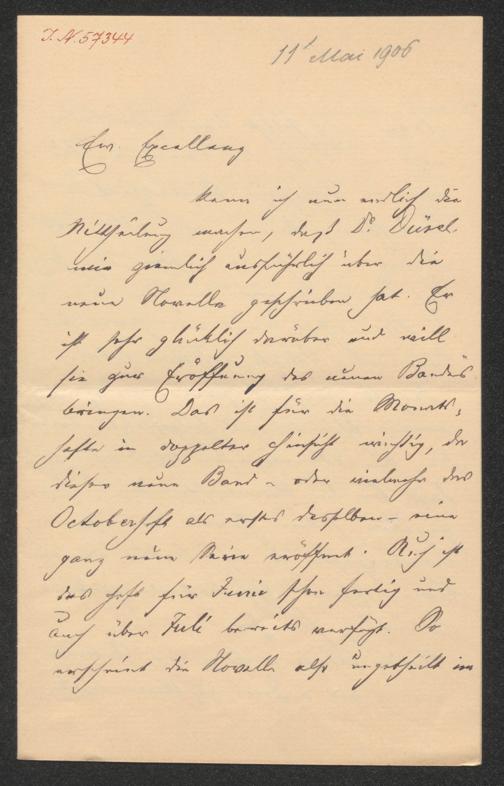 I. N. 57344
11t Mai 1906
Ew. Excellenz
kann ich nun endlich die
Mittheilung machen, daß Dr. Düsel
mir ziemlich ausführlich über die
neue Novelle geschrieben hat. Er
ist sehr glücklich darüber und will
sie zur Eröffnung des neuen Bandes
bringen. Das ist für die Monats-
hefte in doppelter Hinsicht wichtig, da
dieser neue Band – oder vielmehr das
Octoberheft als erstes desselben – eine
ganz neue Serie eröffnet. Auch ist
das Heft für Junie schon fertig und
auch über Juli bereits verfügt. So
erscheint die Novelle also ungetheilt im